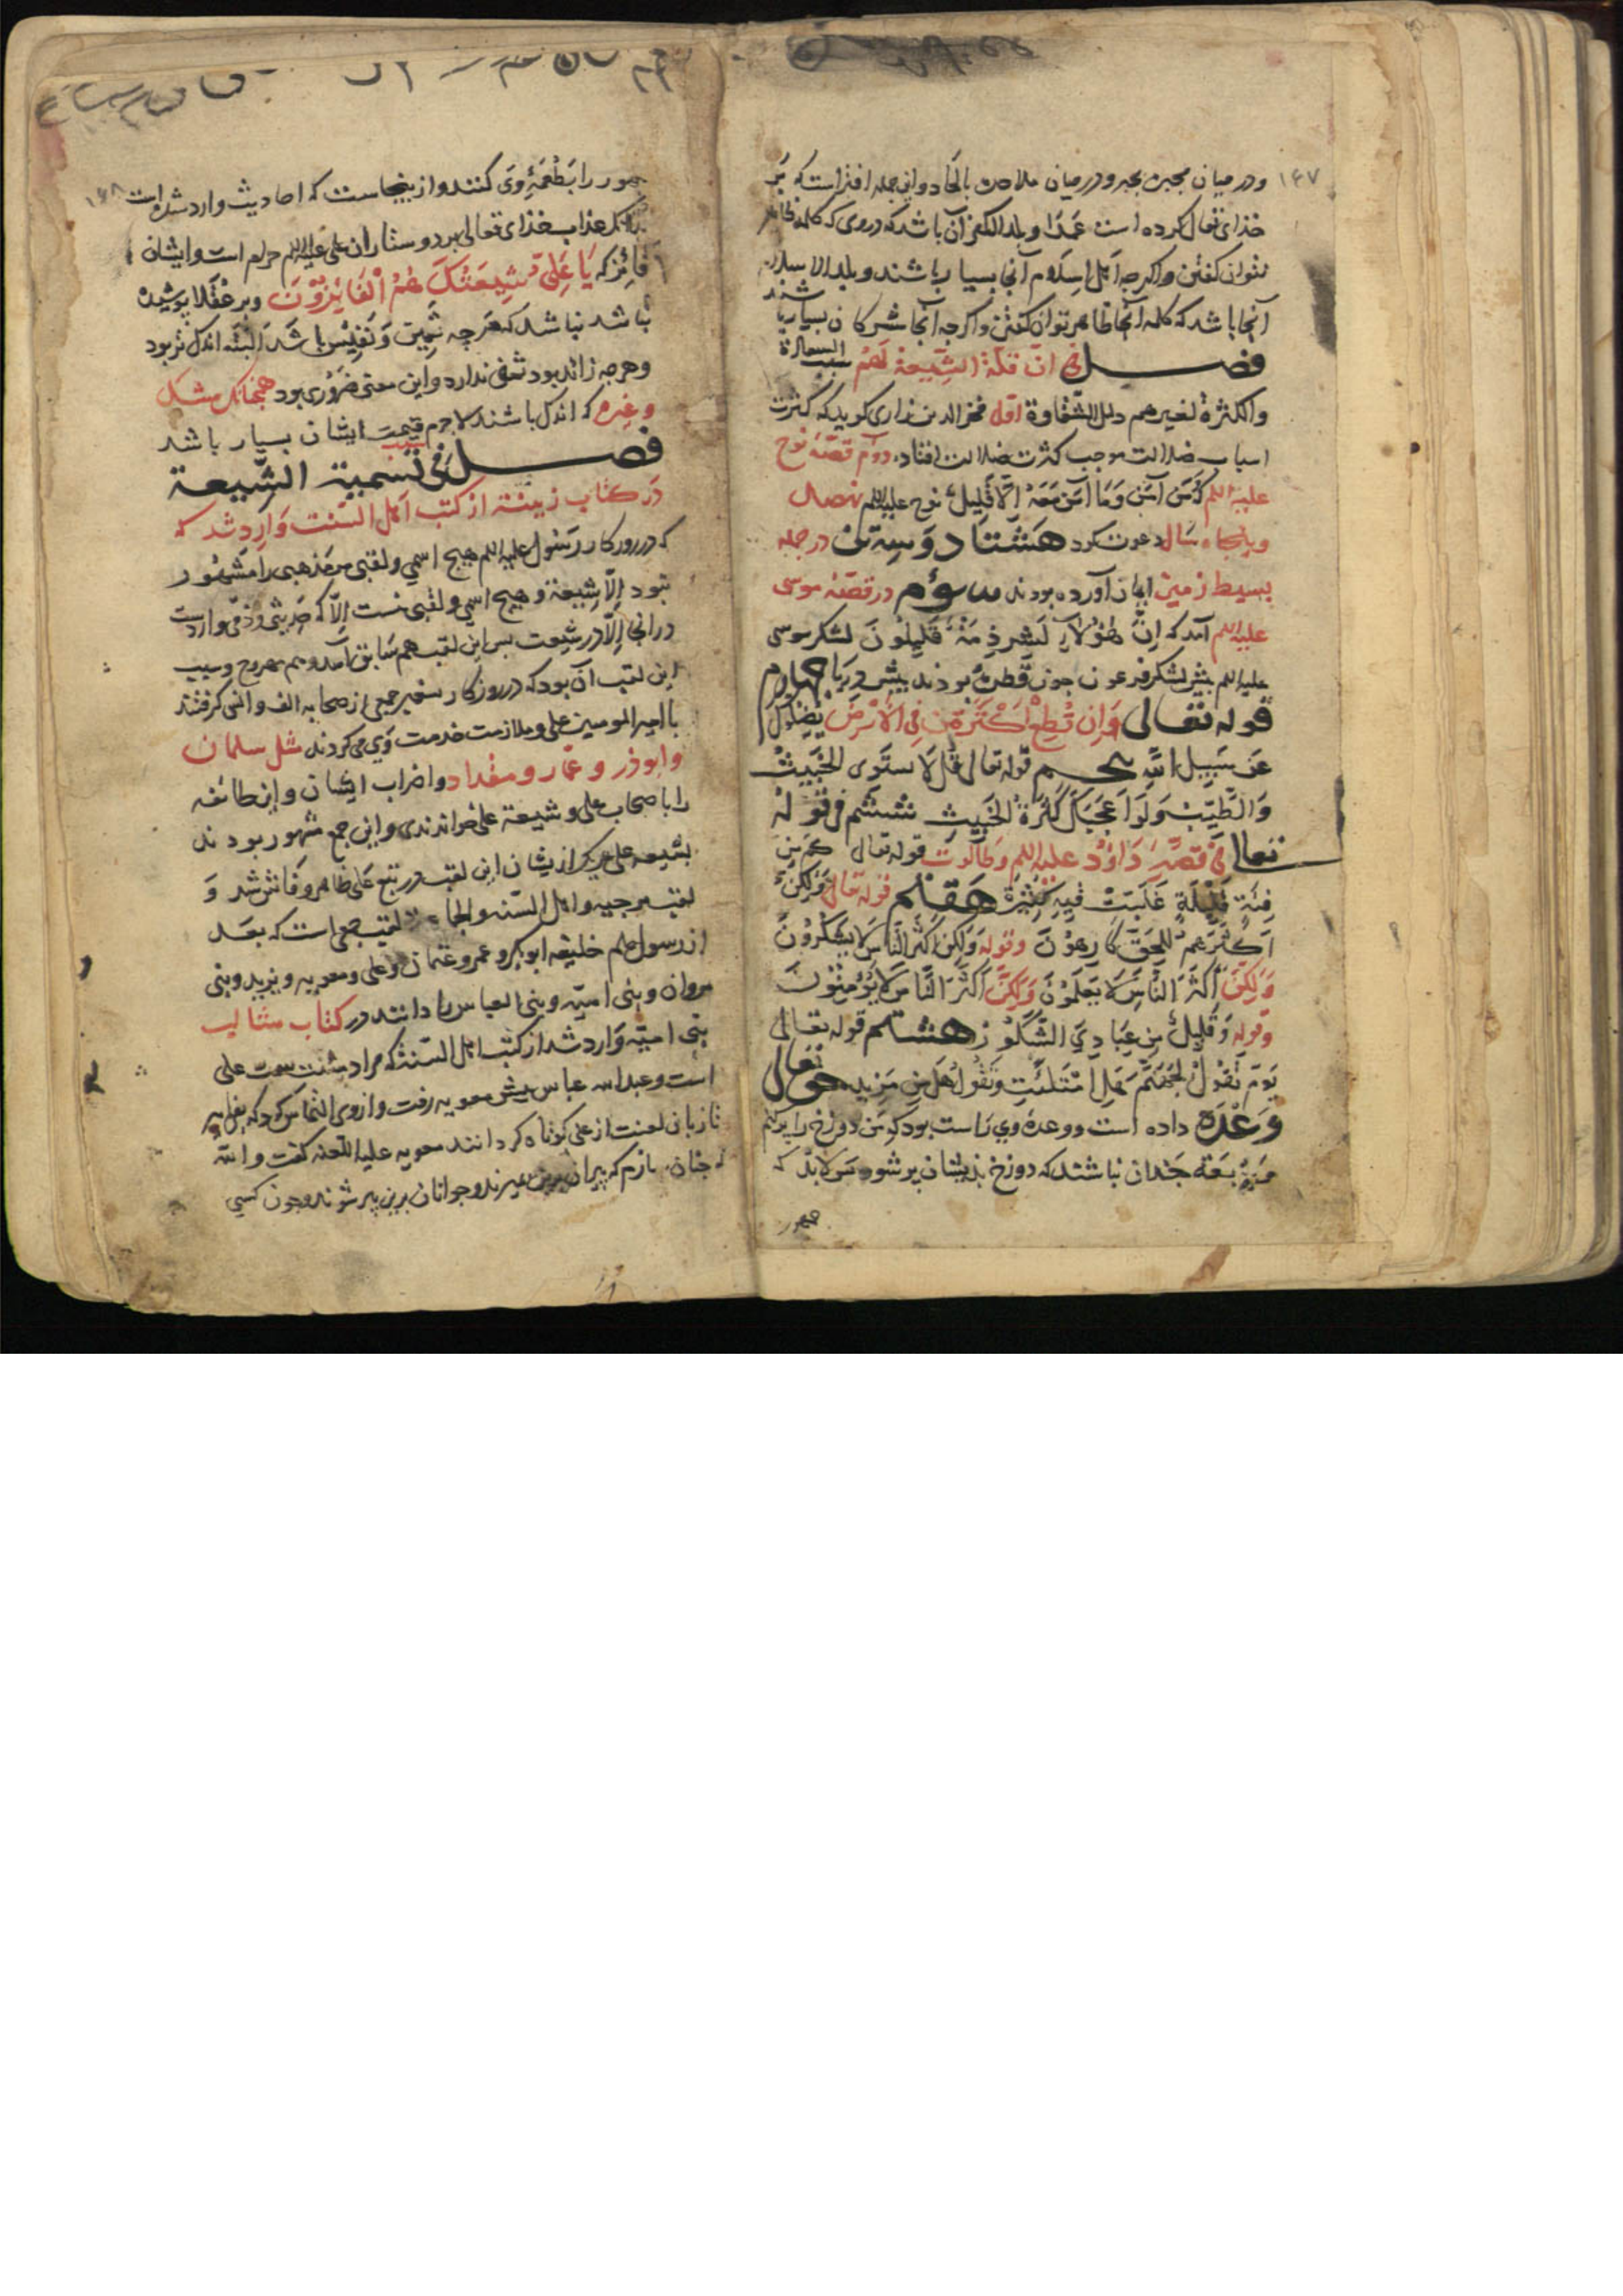 ۱۶۷
ودر میان مجبره بجبر ودر میان ملاحده بالحاد واین جمله افتراست که بر
خدای تعالی کرده است عمدا وبلد الکفر آن باشد که در وی که کلمه ظاهر
نتوان گفتن واکرجه اهل اسلام آنجا بسیار باشند وبلد الاسلام
آنجا باشد که کلمه آنجا ظاهر توان گفتن واکرجه آنجا مشرکان بسیار باشند
فصل فی ان قلة الشیعة لهم سبب السعادة
والکثرة لغیرهم دلیل الشقاوة اول فخر الدین رازی کوید که کثرت
اسباب ضلالت موجب کثرت ضلالت افتاد دوم قصه نوح
علیه اللم که من آمن وما آمن معه الا قلیل نوح علیه اللم نهصد
وپنجاه سال دعوت کرد هشتاد وسه تن در جمله
بسیط زمین ایمان آورده بودند سوم در قصه موسی
علیه اللم آمد که ان هؤلاء لشرذمة قلیلون لشکر موسی
علیه اللم پیش لشکر فرعون جون قطرهٔ بودند پیش دریا جهارم
قوله تعالی وان تطع اکثر من فی الارض یضلوک
عن سبیل الله پنجم قوله تعالی قل لا یستوی الخبیث
والطیب ولو اعجبک کثرة الخبیث ششم فی قوله
تعالی فی قصة داود علیه اللم وطالوت قوله تعالی کم من
فئة قلیلة غلبت فیة کثیرة هفتم قوله تعالی ولکن
اکثرهم للحق کارهون وقوله ولکن اکثر الناس لا یشکرون
ولکن اکثر الناس لا یعلمون ولکن اکثر الناس لا یؤمنون
وقوله وقلیل من عبادی الشکور هشتم قوله تعالی
یوم نقول لجهنم هل امتلئت وتقول هل من مزید حق تعالی
وعده داده است ووعدهٔ وی راست بود که من دوزخ را پر کنم
جندان نباشند که دوزخ بدیشان پر شود پس لابد که
جمهور
۱۶۸
جمهور را بطعمهٔ وی کنند واز ینجاست که احادیث وارد شده است
عذاب خدای تعالی بر دوستاران علی علیه اللم حرام است وایشان
فائز که یا علی شیعتک هم الفائزون وبر عقلا پوشیده
باشد نباشد که هرجه ثمین ونفیس باشد البته اندک تر بود
وهرجه زائد بود ندارد واین معنی ضروری بود همجنانک مشک
وغیره که اندک باشند لاجرم قیمت ایشان بسیار باشد
فصل فی تسمیة الشیعة
در کتاب زینة از کتب اهل السنت وارد شد که
که در روزکار رسول علیه اللم هیج اسمی ولقبی مر مذهبی را مشهور
نبود الا شیعة وهیج اسمی ولقبی نیست الا که وارد است
در انجا الا در شیعت پس این لقب هم سابق آمد وهم ممدوح وسبب
این لقب آن بود که در روزکار پیغمبر جمعی از صحابه الف وانس کرفتند
با امیر المومنین علی وملازمت خدمت وی می کردند مثل سلمان
وابوذر وعمار ومقداد واضراب ایشان واین طائفه
را با صحاب علی وشیعة علی خواندندی واین جمع مشهور بودند
بشیعه علی از یشان این لقب در تتبع علی ظاهر وفاش شد و
لقب مرجیه واهل السنه والجماعة لقب جمعی است که بعد
از رسول علم خلیفه ابوبکر وعمر وعثمان وعلی ومعویه ویزید وبنی
مروان وبنی امیه وبنی العباس را دانند در کتاب مثالب
بنی امیه وارد شد از کتب اهل السنة که مراد سنت علی
است وعبد الله عباس پیش معویه رفت واز وی التماس کرد که
تا زبان لعنت از علی کوتاه کردانند معویه علیه اللعنه گفت والله
که جنان سازم که پیران برین میرند وجوانان برین پیر شوند وجون کسی